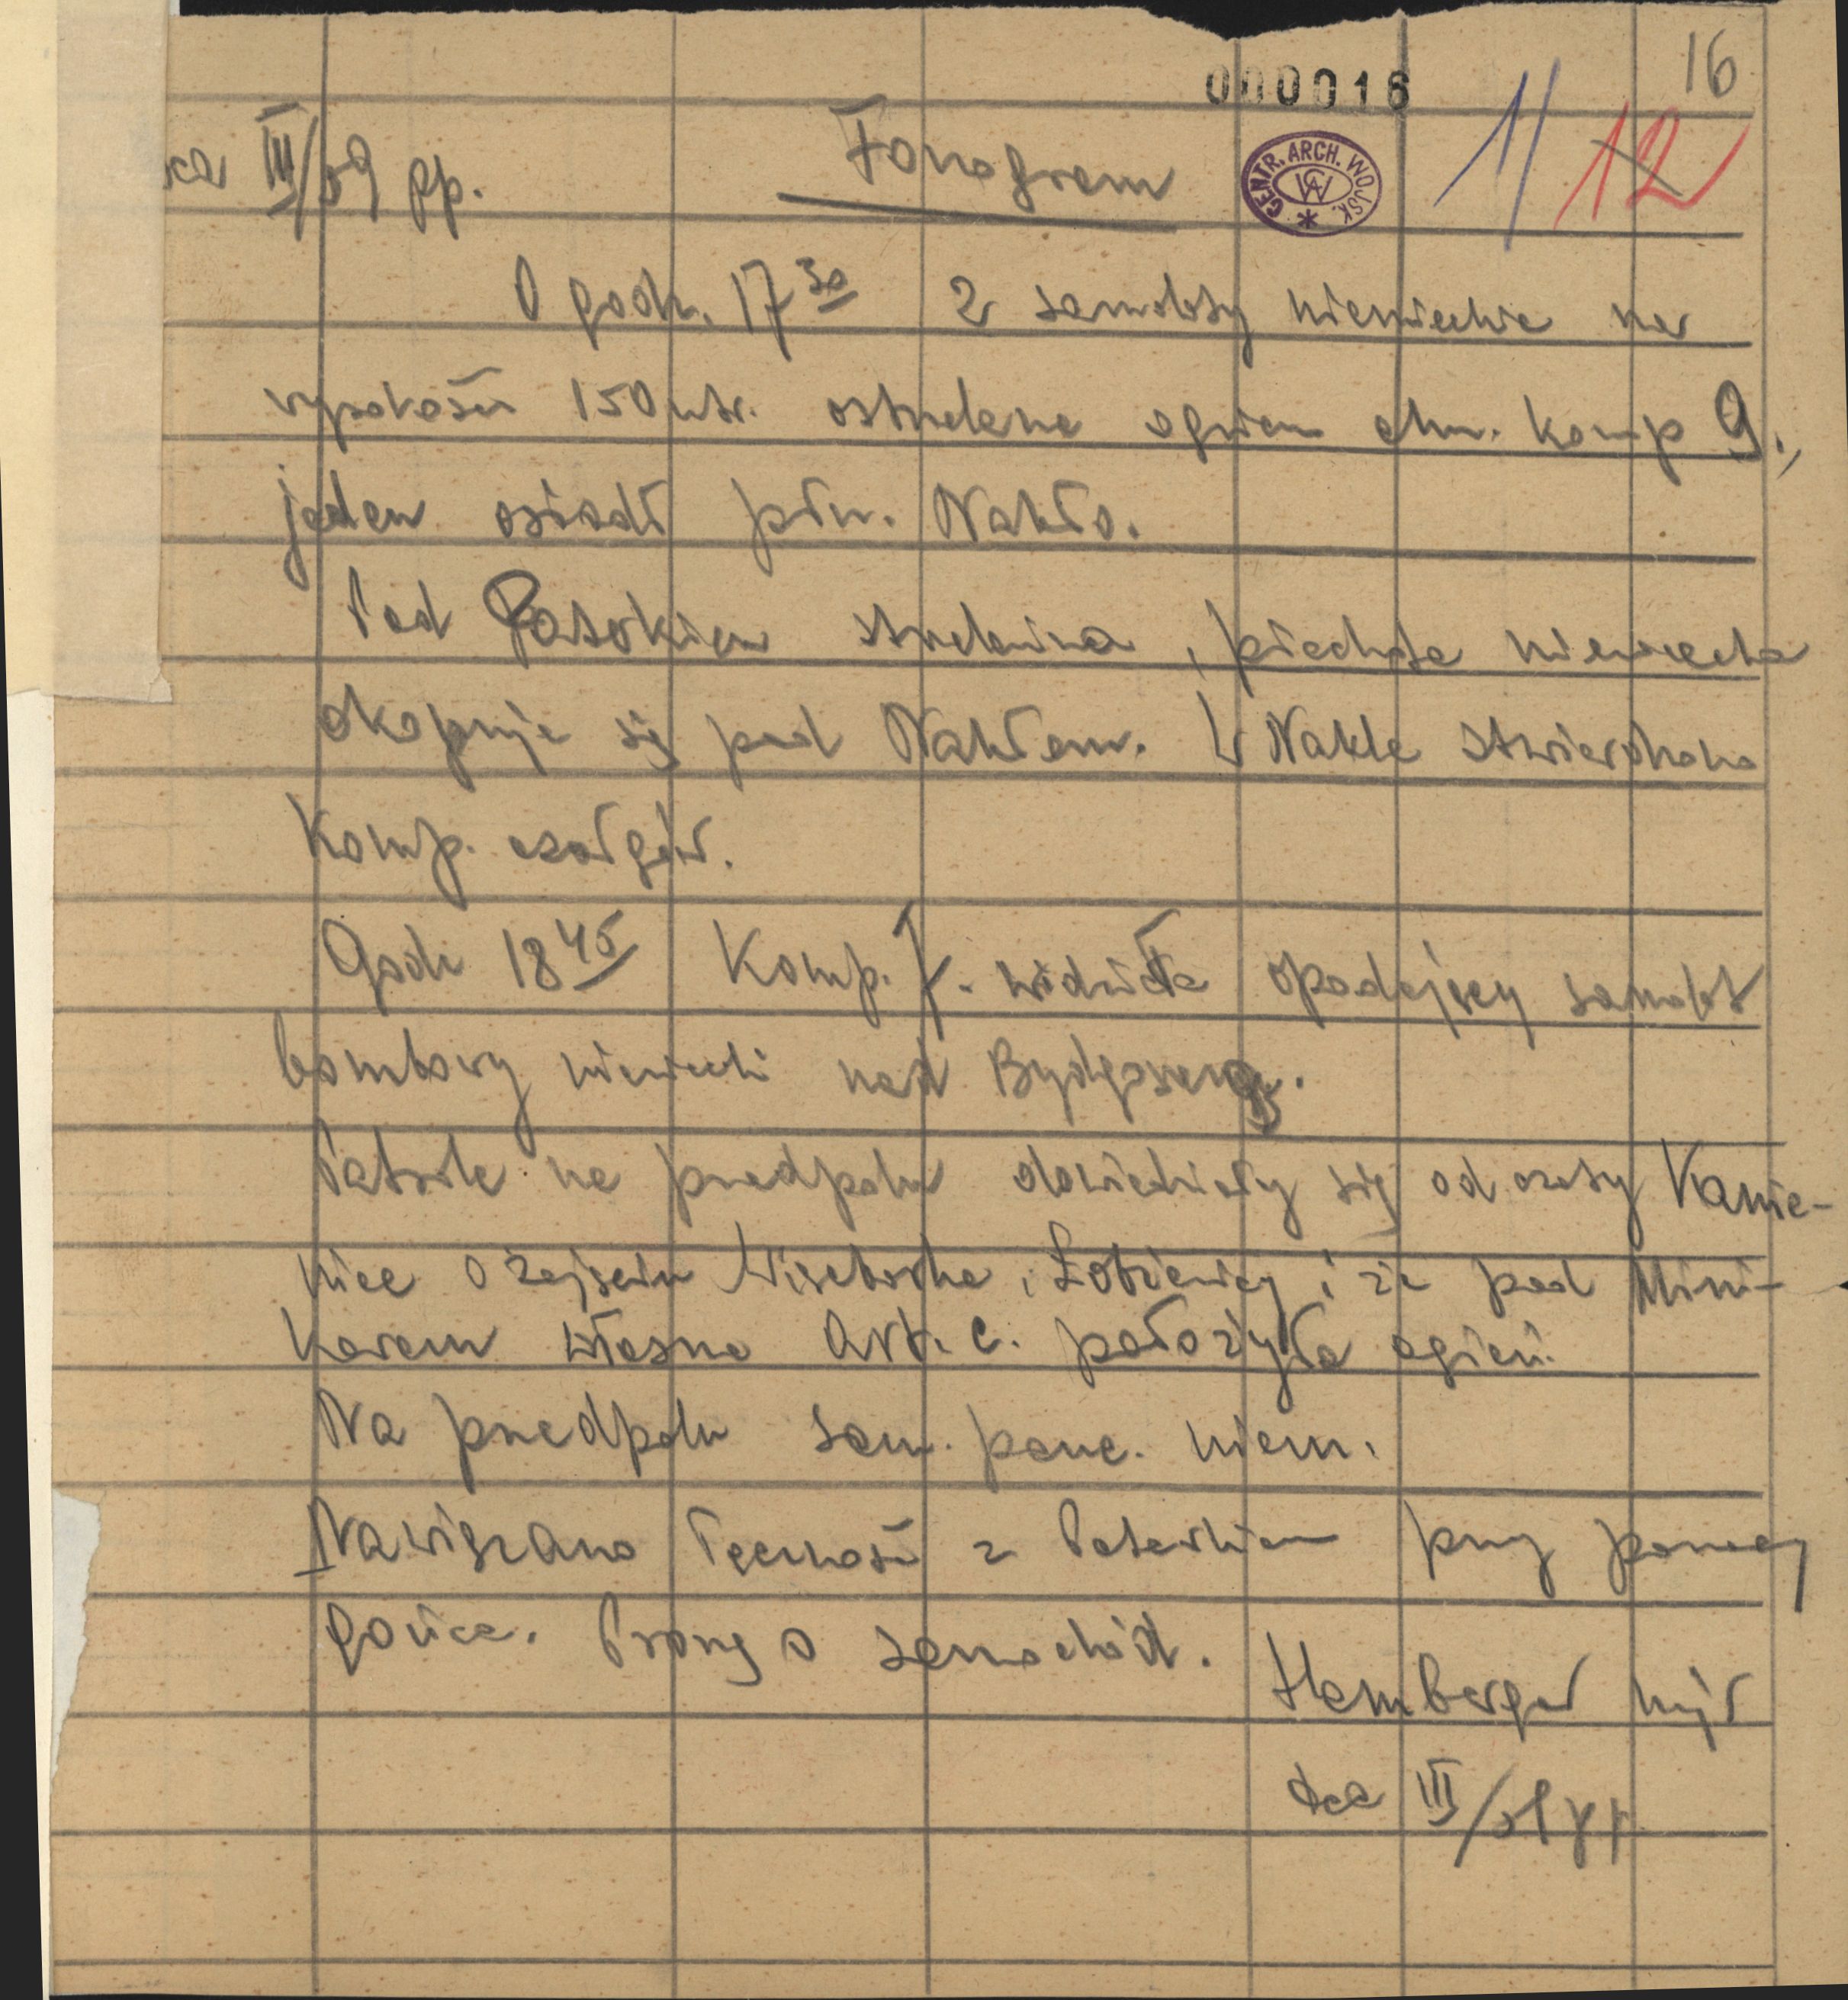 16
000016
1/ 12
ca III/59 pp. Fonogram
CENTR. ARCH. WOJSK. CAW
O godz. 17 30 2 samoloty niemieckie na
wysokości 150 mtr. ostrzelane ogniem ckm. komp 9.,
jeden osiadł płn. Nakło.
Pod Paterkiem strzelanina, piechota niemiecka
okopuje się pod Nakłem. W Nakle stwierdzono
Komp. czołgów.
Godz 18 45 Komp. 7. widziała opadający samolot
bombowy niemiecki nad Bydgoszczą.
Patrole na przedpolu dowiedziały się od czaty Kamie-
nice o zajęciu Wyseborka, Łobżenicy i że pod Mini-
kowem własna Art. c. położyła ogień.
Na przedpolu sam. panc. niem.
Nawiązano łączność z Paterkiem przy pomocy
gońca. Proszę o samochód.
Hamberger mjr
dca III/59 pp